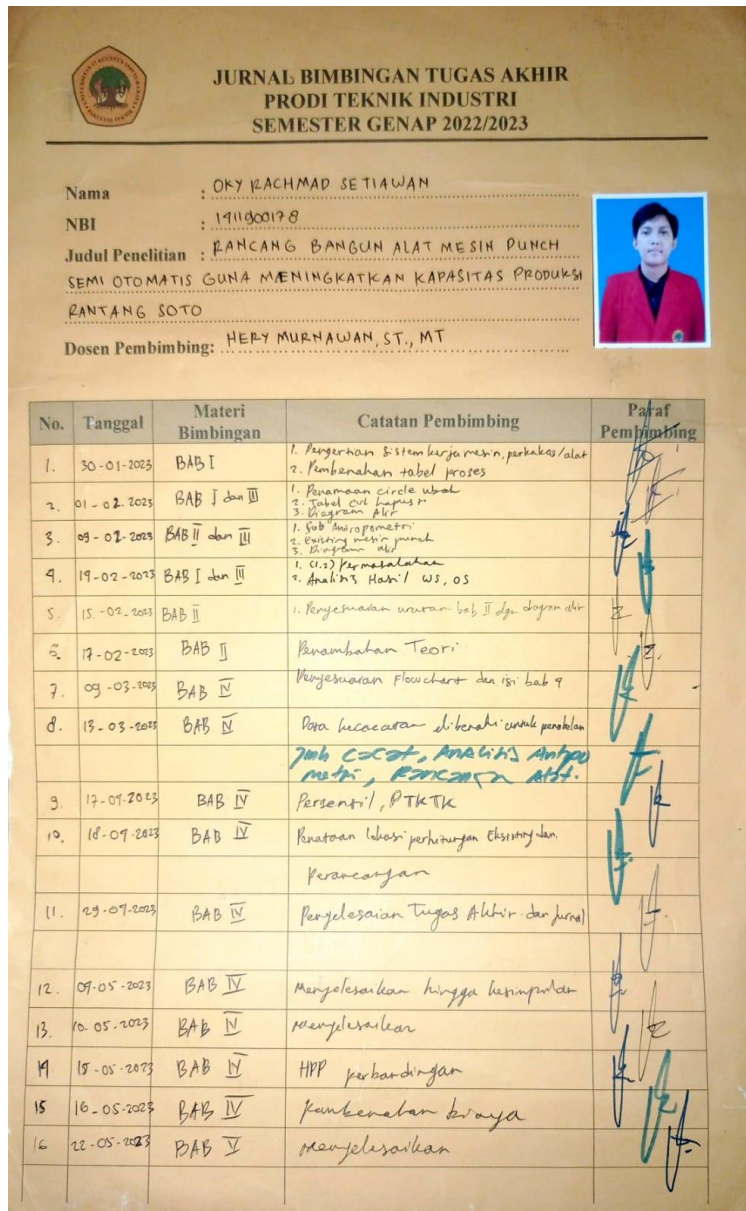 JURNAL BIMBINGAN TUGAS AKHIR
PRODI TEKNIK INDUSTRI
SEMESTER GENAP 2022/2023
Nama : OKY RACHMAD SETIAWAN
NBI : 1911900178
Judul Penelitian : RANCANG BANGUN ALAT MESIN PUNCH
SEMI OTOMATIS GUNA MENINGKATKAN KAPASITAS PRODUKSI
RANTANG SOTO
Dosen Pembimbing: HERY MURNAWAN, ST., MT
No. Tanggal Materi Bimbingan Catatan Pembimbing Paraf Pembimbing
1. 30-01-2023 BAB I 1. Pengertian sistem kerja mesin, perkakas/alat
2. Pembenahan tabel proses
2. 01-02-2023 BAB I dan III 1. Penamaan circle ubah
2. Tabel hapus
3. Diagram Alir
3. 09-02-2023 BAB II dan III 1. Sub Antropometri
2. Existing mesin punch
3. Diagram alir
4. 14-02-2023 BAB I dan II 1. (1.2) Permasalahan
2. Analisis Hasil WS, OS
5. 15-02-2023 BAB II 1. Penyesuaian urutan bab II dgn diagram alir
6. 17-02-2023 BAB II Penambahan Teori
7. 09-03-2023 BAB IV Penyesuaian Flowchart dan isi bab 4
8. 13-03-2023 BAB IV Data kecacatan dibenahi untuk
Jmh cacat, Analisis Antropo
metri, Rancangan Alat.
9. 17-04-2023 BAB IV Persentil, PTKTK
10. 18-04-2023 BAB IV Penataan lokasi perhitungan Eksisting dan
Perancangan
11. 29-04-2023 BAB IV Penyelesaian Tugas Akhir dan Jurnal
12. 09-05-2023 BAB IV Menyelesaikan hingga kesimpulan
13. 10-05-2023 BAB IV Menyelesaikan
14 15-05-2023 BAB IV HPP perbandingan
15 16-05-2023 BAB IV biaya
16 22-05-2023 BAB V Menyelesaikan